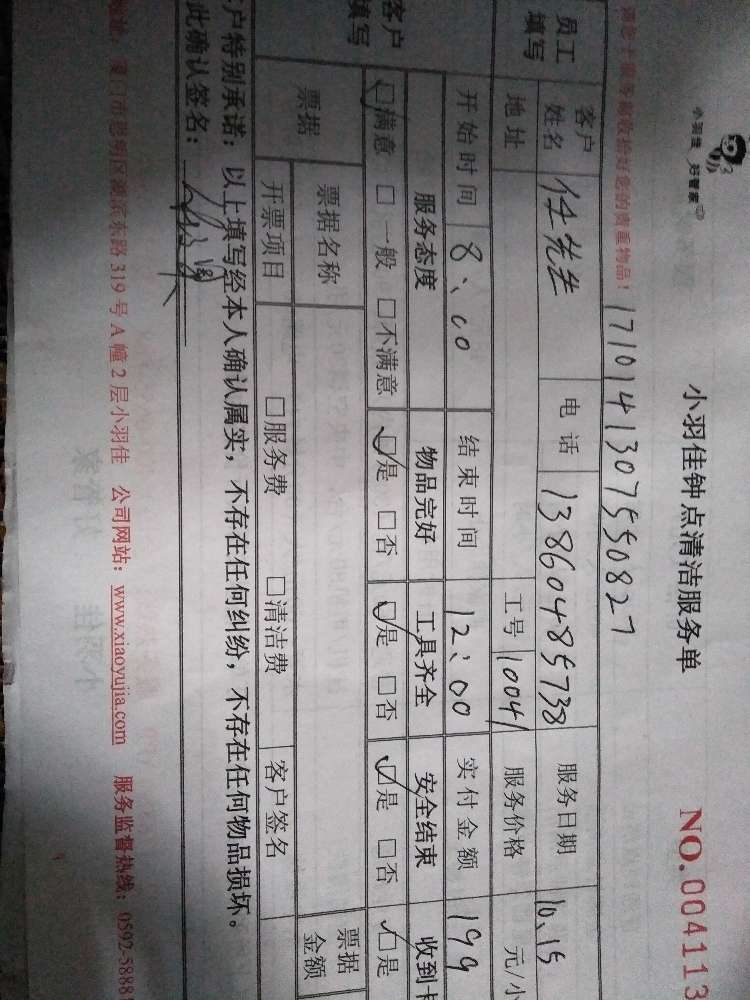 小羽佳 好管家
小羽佳钟点清洁服务单
NO.004113
请您十填等部收拾好您的贵重物品！
17101413075550827
员工填写
客户姓名 任先生 电话 13860485738 服务日期 10.15
地址 工号 10041 服务价格 元/小
开始时间 8:00 结束时间 12:00 实付金额 199
客户填写
服务态度 物品完好 工具齐全 安全结束 收到卡
☑满意 □一般 □不满意 ☑是 □否 ☑是 □否 ☑是 □否 ☑是
票据 票据名称 票据金额
开票项目 □服务费 □清洁费 客户签名
客户特别承诺：以上填写经本人确认属实，不存在任何纠纷，不存在任何物品损坏。
此确认签名：
地址：厦门市思明区湖滨东路319号A幢2层小羽佳 公司网站：www.xiaoyujia.com 服务监督热线：0592-5888